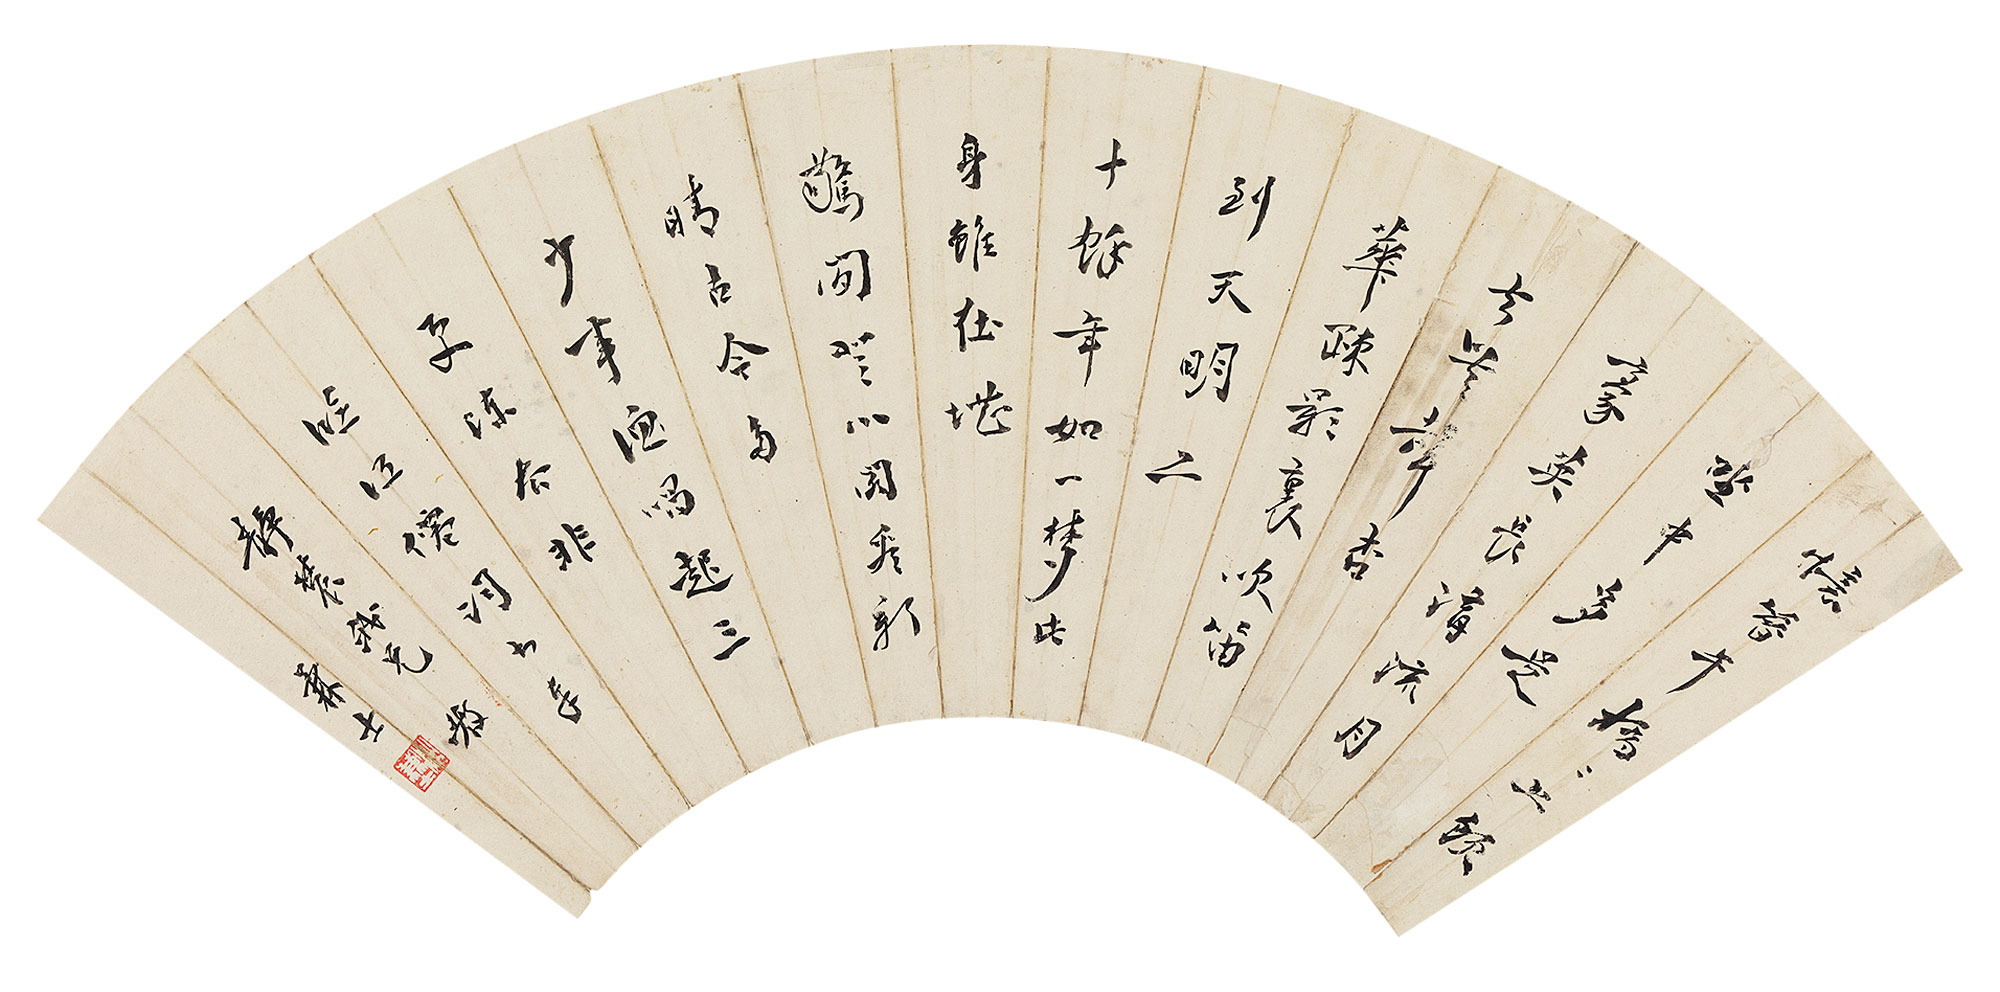 憶昔午橋〻上飲
坐中多是
豪英長溝流月
去無聲杏
華疎影裏吹笛
到天明二
十餘年如一夢此
身雖在堪
驚閒登小閣看新
晴古今多
少事漁唱起三
更陳去非
臨江僊詞書奉
靜 兄教
士